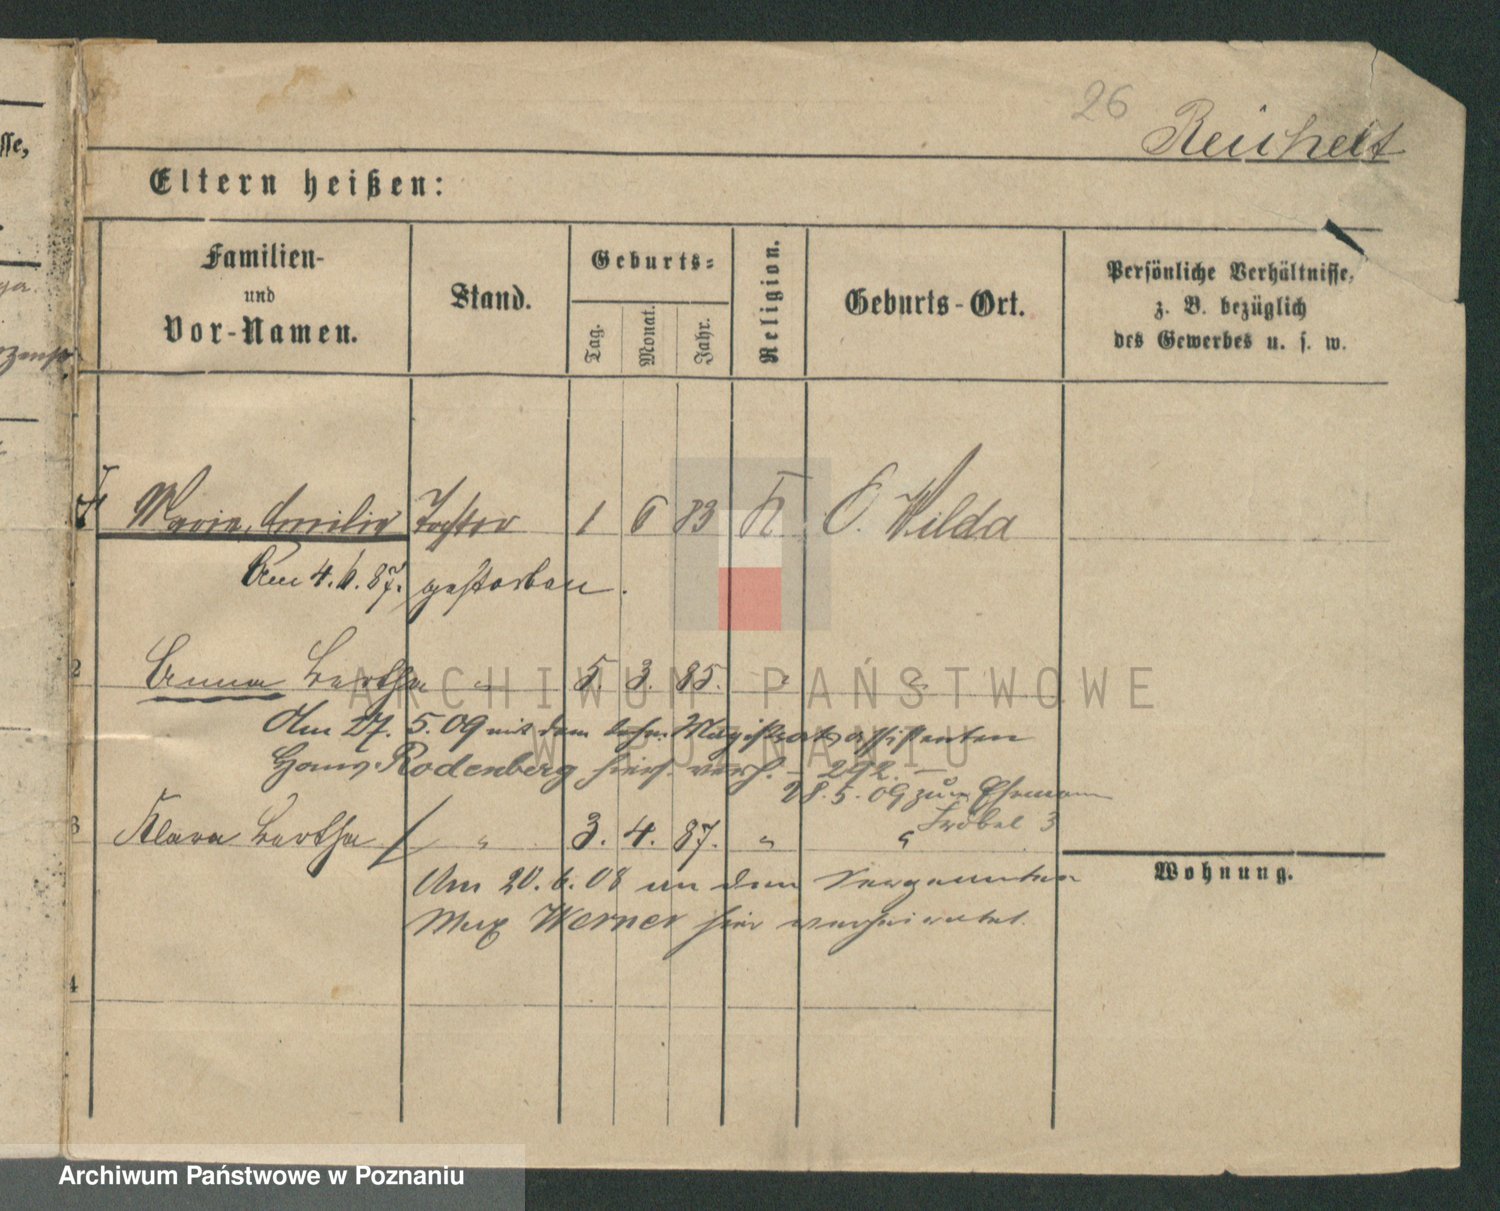 26
Reichelt
sse,
Eltern heißen:
Familien-
und
Vor-Namen.
Stand.
Geburts-
Tag.
Monat.
Jahr.
Religion.
Geburts-Ort.
Persönliche Verhältnisse,
z. B. bezüglich
des Gewerbes u. s. w.
Marie Emilie Tochter 1 6 83 K O. Wilda
Am 4.6.87. gestorben.
2 Anna Bertha " 5. 3. 85. " "
Am 27. 5. 09 mit dem Magistratsassistenten
Hans Rodenberg hier verh. - 292. -
28.5.09 zum Ehemann
Fröbel 3
3 Klara Bertha " 3. 4. 87. " "
Am 20.6.08 an dem Sergeanten
Max Werner hier verheiratet.
4
Wohnung.
ARCHIWUM PAŃSTWOWE
W POZNANIU
Archiwum Państwowe w Poznaniu